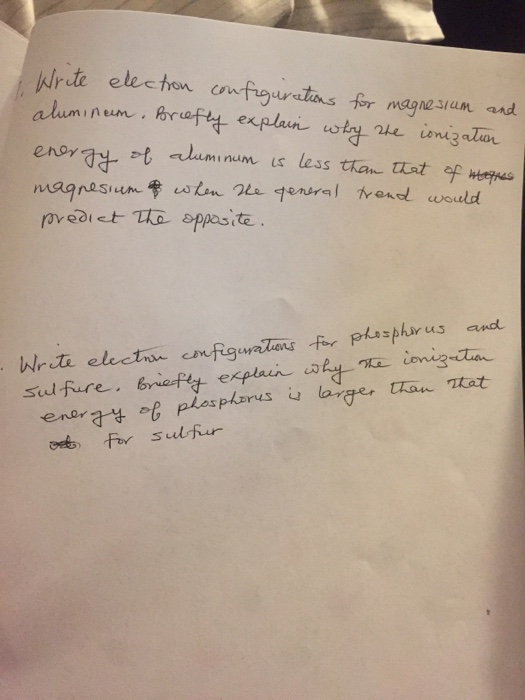 1. Write electron configurations for magnesium and
alumineum. Briefly explain why the ionization
energy of aluminum is less than that of
magnesium when the general trend would
predict the opposite.
. Write electron configurations for phosphorus and
sulfure. Briefly explain why the ionization
energy of phosphorus is larger than that
for sulfur